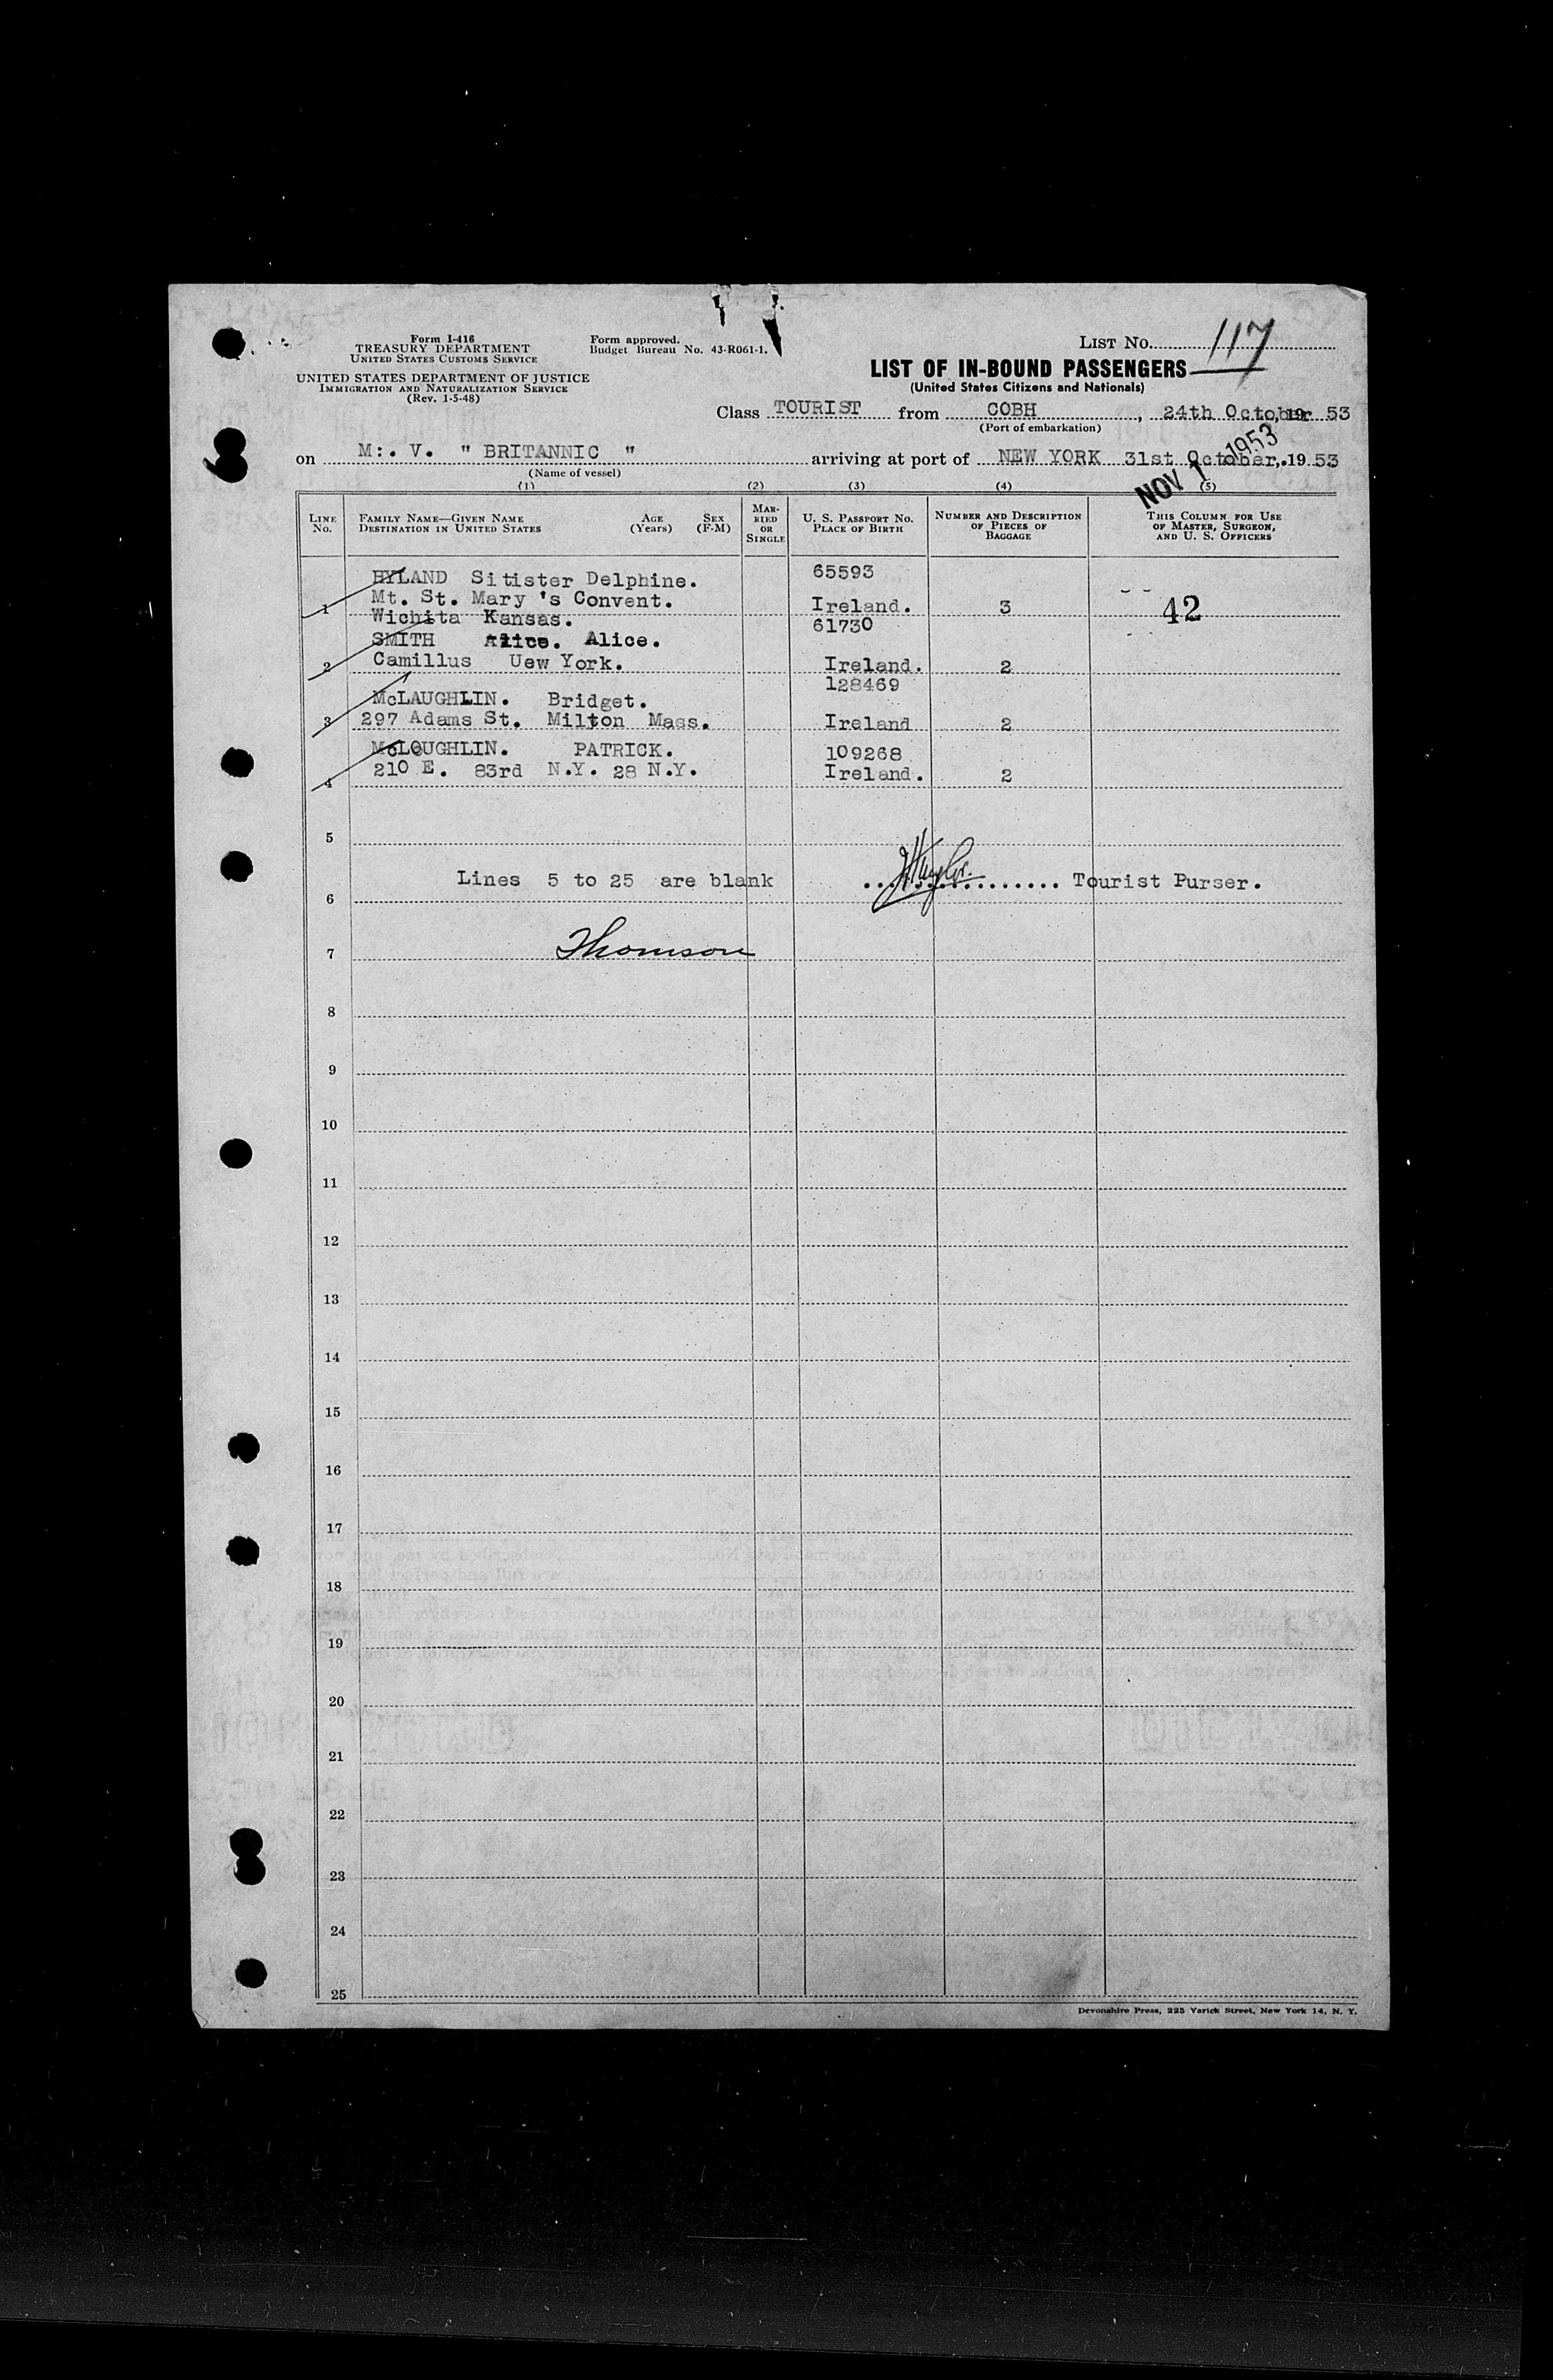 Form I-416
TREASURY DEPARTMENT
UNITED STATES CUSTOMS SERVICE
UNITED STATES DEPARTMENT OF JUSTICE
IMMIGRATION AND NATURALIZATION SERVICE
(Rev. 1-5-48)
Form approved.
Budget Bureau No. 43-R061-1.
LIST No. 117
LIST OF IN-BOUND PASSENGERS
(United States Citizens and Nationals)
Class TOURIST from COBH, 24th October, 19 53
(Port of embarkation)
on M:. V. " BRITANNIC " arriving at port of NEW YORK 31st October, 19 53
(Name of vessel)
NOV 1 1953
(1) (2) (3) (4) (5)
LINE NO.
FAMILY NAME—GIVEN NAME AGE SEX
DESTINATION IN UNITED STATES (Years) (F-M)
MARRIED OR SINGLE
U. S. PASSPORT NO.
PLACE OF BIRTH
NUMBER AND DESCRIPTION
OF PIECES OF
BAGGAGE
THIS COLUMN FOR USE
OF MASTER, SURGEON,
AND U. S. OFFICERS
HYLAND Sitister Delphine. 65593
1 Mt. St. Mary 's Convent. Ireland. 3 42
Wichita Kansas.
SMITH Alice. Alice. 61730
2 Camillus Uew York. Ireland. 2
McLAUGHLIN. Bridget. 128469
3 297 Adams St. Milton Mass. Ireland 2
McLOUGHLIN. PATRICK. 109268
4 210 E. 83rd N.Y. 28 N.Y. Ireland. 2
5
Lines 5 to 25 are blank ................ Tourist Purser.
6
7 Thomson
8
9
10
11
12
13
14
15
16
17
18
19
20
21
22
23
24
25
Devonshire Press, 225 Varick Street, New York 14, N. Y.